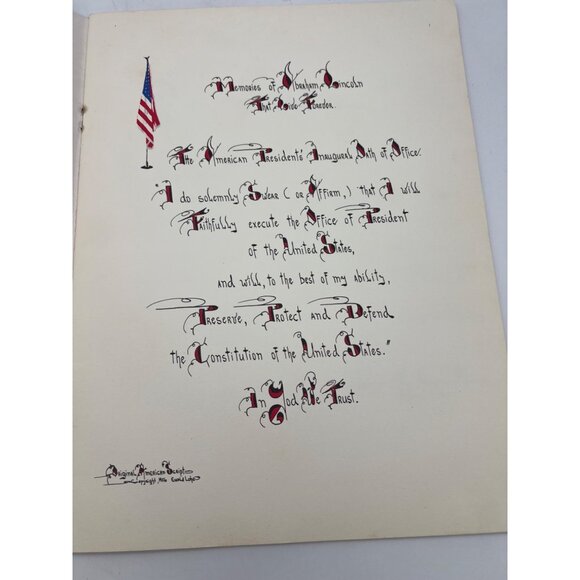 Memories of Abraham Lincoln
That Live Forever.
The American President's Inaugural Oath of Office.
"I do solemnly Swear (or Affirm,) that I will
Faithfully execute the Office of President
of the United States,
and will, to the best of my ability,
Preserve, Protect and Defend
the Constitution of the United States."
In God We Trust.
Original American Script
Copyright